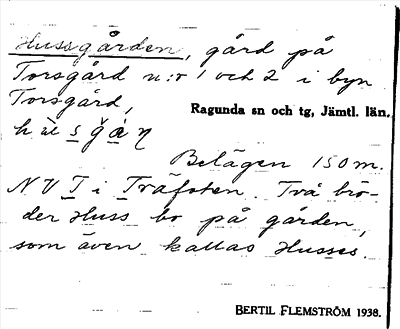 Hussgården, gård på
Torsgård n:r 1 och 2 i byn
Torsgård,
Ragunda sn och tg, Jämtl. län.
Belägen 150 m.
NV T i Träfoten. Två brö-
der Huss bo på gården,
som även kallas Husses.
BERTIL FLEMSTRÖM 1938.